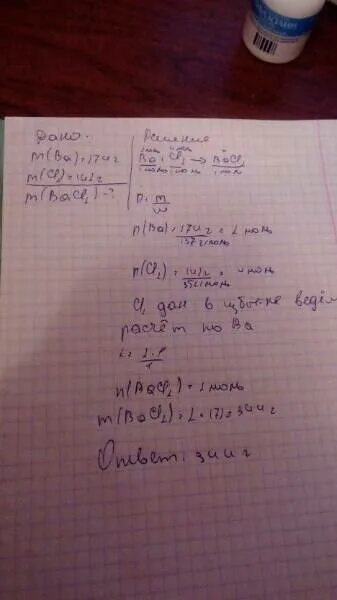 Дано:
m(Ba)=174г
m(Cl2)=142г
m(BaCl2)-?
Решение
2моль 4моль
Ba+Cl2→BaCl2
1моль 1моль 1моль
n=m/M
n(Ba)=174г/137г/моль=2моль
n(Cl2)=142г/35г/моль=4моль
Cl2 дан в избытке ведём
расчёт по Ba
n(BaCl2)=2моль
m(BaCl2)=2·172=344г
Ответ: 344г